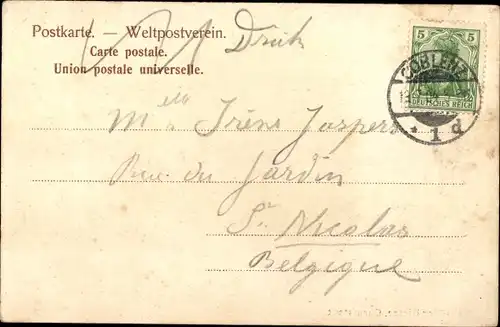 Postkarte. — Weltpostverein.
Druck
Carte postale.
Union postale universelle.
5 5
DEUTSCHES REICH
COBLENZ
* 1 d
Melle Irène Jaspers
Rue du Jardin
St. Nicolas
Belgique